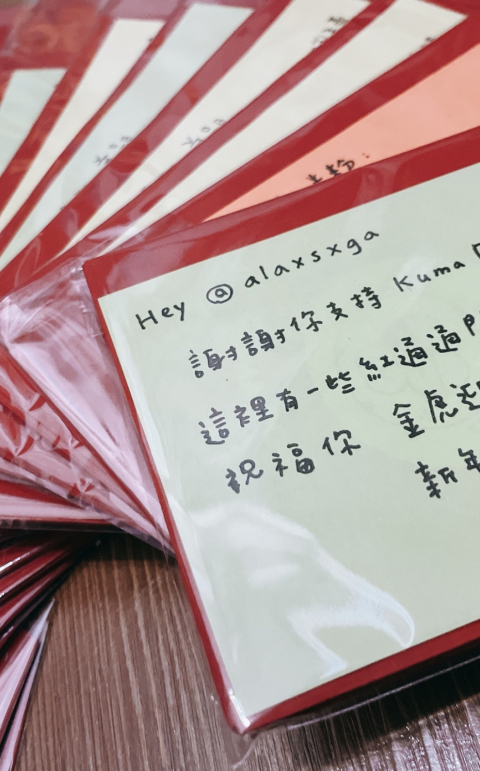 Hey @alaxsxga
謝謝你支持 Kuma
這裡有一些紅通通
祝福你 金虎迎
新年